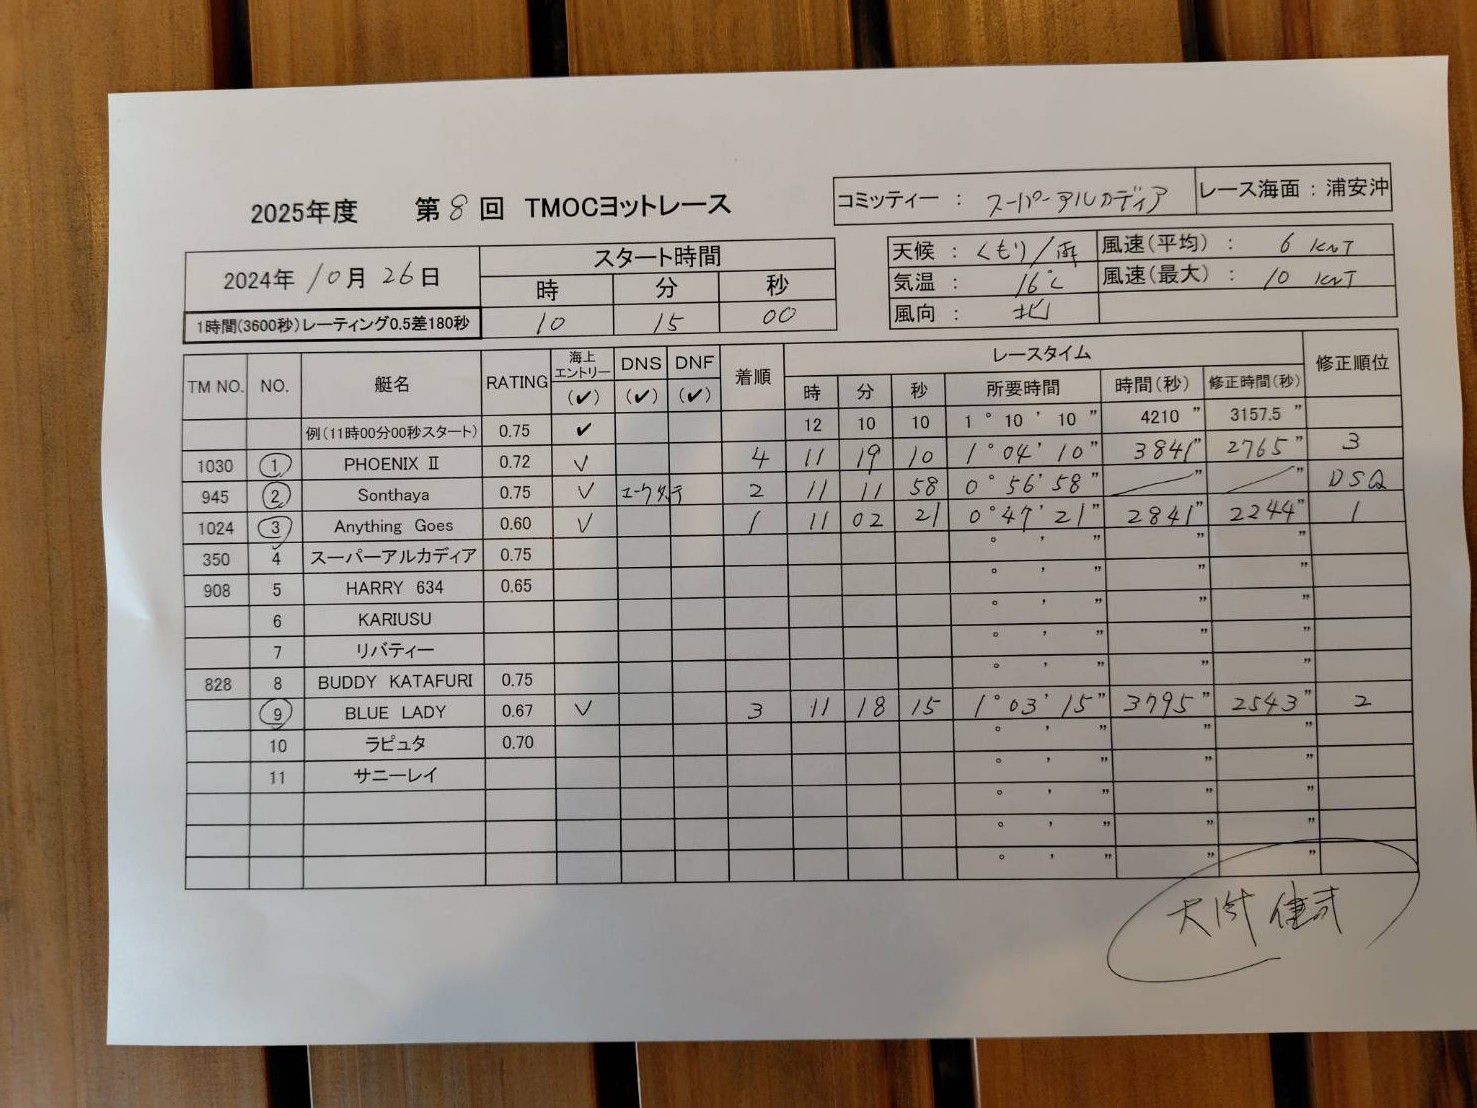 2025年度 第8回 TMOCヨットレース
コミッティー : スーパーアルカディア レース海面 : 浦安沖
2024年 10月 26日
スタート時間
時 分 秒
10 15 00
1時間(3600秒)レーティング0.5差180秒
天候 : くもり/雨 風速(平均) : 6 KNT
気温 : 16℃ 風速(最大) : 10 KNT
風向 : 北
TM NO. NO. 艇名 RATING 海上エントリー (✔) DNS (✔) DNF (✔) 着順 レースタイム 修正順位
時 分 秒 所要時間 時間(秒) 修正時間(秒)
例(11時00分00秒スタート) 0.75 ✔ 12 10 10 1 ° 10 ' 10 " 4210 " 3157.5 "
1030 ① PHOENIX Ⅱ 0.72 ✓ 4 11 19 10 1 ° 04 ' 10 " 3841 " 2765 " 3
945 ② Sonthaya 0.75 ✓ 2 11 11 58 0 ° 56 ' 58 " " " DSQ
1024 ③ Anything Goes 0.60 ✓ 1 11 02 21 0 ° 47 ' 21 " 2841 " 2244 " 1
350 4 スーパーアルカディア 0.75 ° ' " " "
908 5 HARRY 634 0.65 ° ' " " "
6 KARIUSU ° ' " " "
7 リバティー ° ' " " "
828 8 BUDDY KATAFURI 0.75 ° ' " " "
⑨ BLUE LADY 0.67 ✓ 3 11 18 15 1 ° 03 ' 15 " 3795 " 2543 " 2
10 ラピュタ 0.70 ° ' " " "
11 サニーレイ ° ' " " "
° ' " " "
° ' " " "
° ' " " "